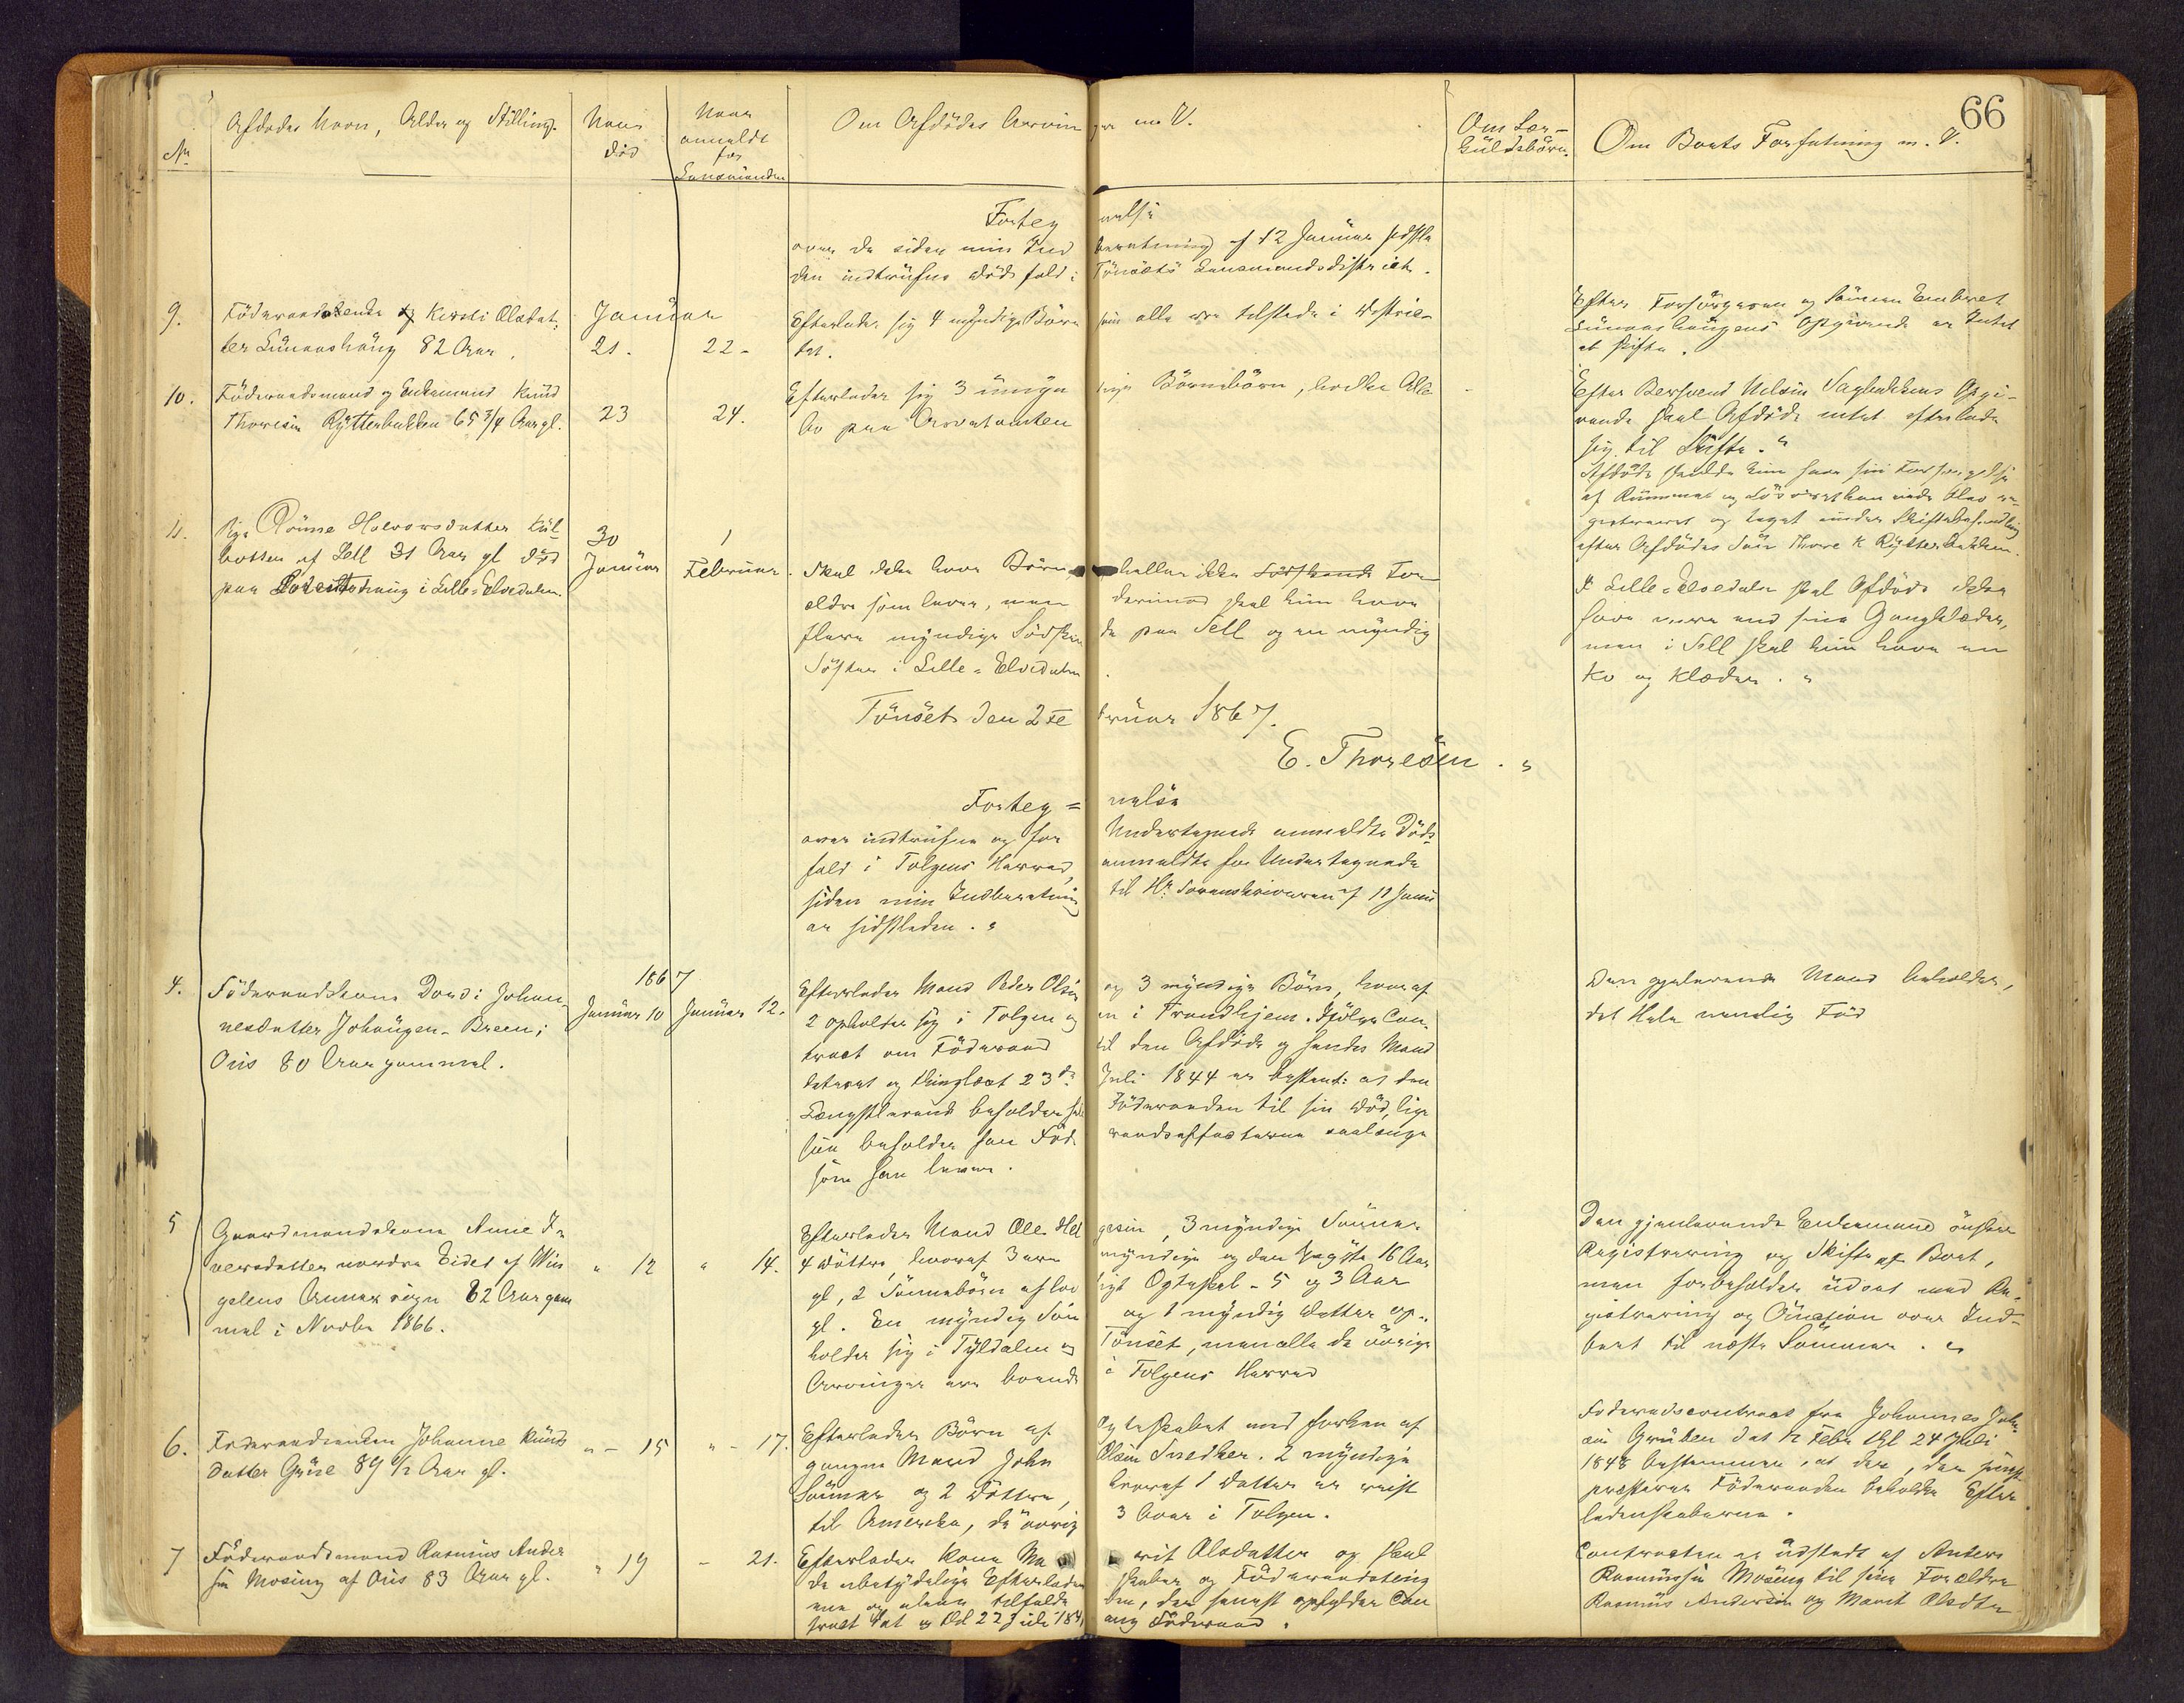 66
No
Afdødes Navn, Alder og Stilling.
Naar
død
Naar
anmeldt
for
Lensmanden
Om Afdødes Arvinger m. V.
Om Sær-
Culdsbørn.
Om Boets Forfatning m. V.
Fortegnelse
over de siden min Indberetning af 12 Januar sidstle
den indtrufne Dødsfald i Tönsets Lensmandsdistrict.
9.
Föderaadsenke Kirsti Olsdat-
ter Lunaashaug 82 Aar.
Januar
21.
22 -
Efterlader sig 4 myndige Börn som alle ere tilstede i Distric-
tet.
Efter Forsörgeren og Sönnen Embret
Lunaashaugens Opgivende er Intet
at skifte.
10.
Föderaadsmand og Enkemand Knud
Thoresen Rytterbakken 65 3/4 Aar gl.
23
24.
Efterlader sig 3 umyndige Börnebörn, hvilke Alle
bo paa
Efter Bersvend Nilsen Sagbakkens Opgi-
vende skal Afdöde intet efterlade
sig til Skifte. "
Afdöde skulde kun have sin Forsörgelse
af
gistreret og taget under Skiftebehandling
efter Afdödes Sön Thore K Rytterbakken.
11.
Pige Rönne Halvorsdatter Kul-
botten af Sell 31 Aar gl död
paa i Lille-Elvedalen.
30
Januar
1
Februar.
Skal ikke have Börn heller ikke Södskende For-
ældre som lever, men derimod skal hun have
flere myndige Södskende paa Sell og en myndig
Söster i Lille-Elvedalen.
I Lille-Elvedalen skal Afdöde ikke
have mere end sine Gangklæder,
men i Sell skal hun have en
Ko og Klæder. "
Tönset den 2 Februar 1867.
E. Thoresen. "
Forteg=nelse
over indtrufne og for Undertegnede anmeldte Döds-
fald i Tolgens Herred, anmeldte for Undertegnede
siden min Indberetning til Hr. Sorenskriveren af 11 Janu
ar sidstleden. "
4.
Föderaadskone Dordi Johan-
nesdatter Johaugen-Breen i
Öiis 80 Aar gammel.
1867
Januar 10
Januar 12.
Efterlader Mand Peder Olsen og 3 myndige Börn, hvoraf
2 opholder sig i Tolgen og en i Trondhjem. Ifölge Con-
tract om Föderaad til den Afdöde og hendes Mand
dateret og thinglæst 23de Juli 1844 er bestemt: at den
Længstlevende beholder hele Föderaaden til sin Död, lige
saa beholder han Föderaadseffecterne saalænge
som han lever.
Den gjenlevende Mand beholder,
det Hele nemlig Föd
5
Gaardmandskone Anne I-
versdatter nordre Eidet af Vin
gelens Annexsogn 62 Aar gam
mel i Novbr 1866.
" 12
" 14.
Efterlader Mand Ole Helgesen, 3 myndige Sönner
4 Döttre, hvoraf 3 ere myndige og den yngste 16 Aar
gl, 2 Sönnebörn af lovligt Ogteskab - 5 og 3 Aar
gl. En myndig Sön og 1 myndig Datter op-
holder sig i Tyldalen og Tönset, men alle de övrige
Arvinger ere boende i Tolgens Herred
Den gjenlevende Enkemand önsker
Registrering og Skifte af Boet,
men forbeholder udsat med Re-
gistrering og Auction over Ind-
boet til næste Sommer. "
6.
Föderaadsenken Johanne Knuds
datter Gröse 89 1/2 Aar gl.
" - 15
" - 17.
Efterlader Börn af Ogteskabet med forhen af
gangne Mand John Olsen Snedker. 2 myndige
Sönner og 2 Döttre, hvoraf 1 Datter er reist
til Amerika, de övrige 3 boer i Tolgen.
Föderaadscontract fra Johannes John
sen Gruben dat 12 Febr thl 24 Juli
1848 bestemmer, at den, der
præsterer Föderaaden beholder Efter
ladenskaberne.
7
Föderaadsmand Rasmus Ander
sen Moseng af Öiis 83 Aar gl.
" 19
- 21.
Efterlader Kone Marit Olsdatter og skal
de ubetydelige Efterladenskaber og Föderaadsting
ene og alene tilfalde den, der senest opfylder Con
tract dat og thl 22 Juli 184 ang Föderaad.
Contracten er udstedt af Anders
Rasmussen Moseng til sine Forældre
Rasmus Andersen og Marit Olsdtr